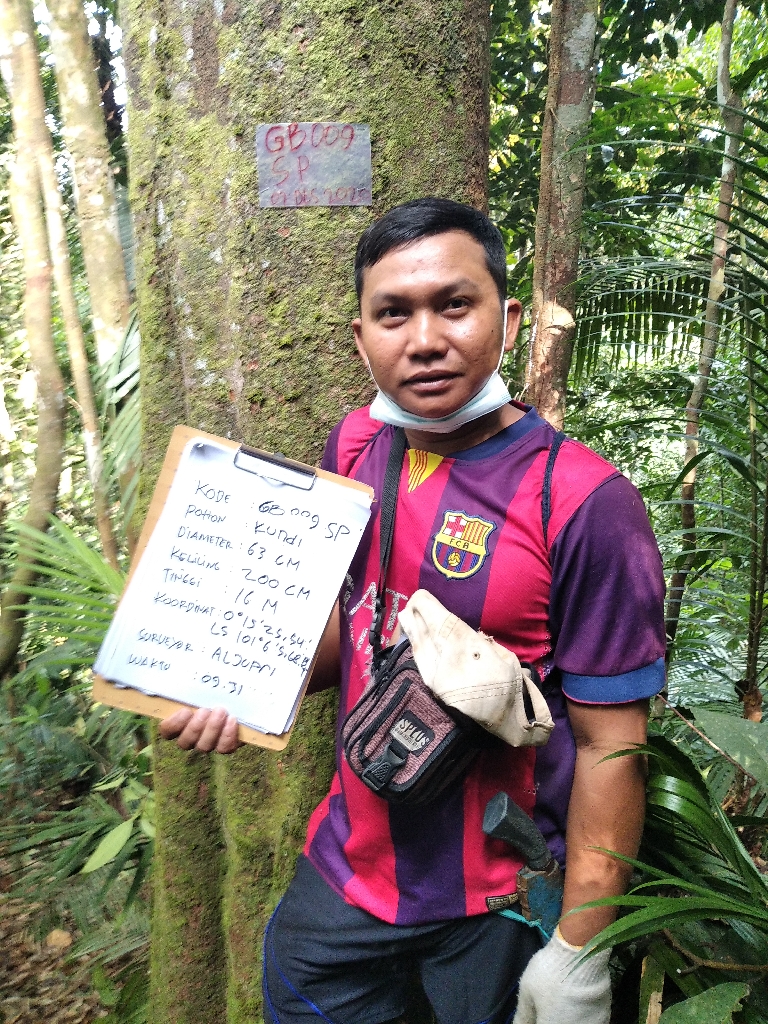 GB009
SP
KODE : GB 009 SP
POHON : KUNDI
DIAMETER : 63 CM
KELILING : 200 CM
TINGGI : 16 M
KOORDINAT : 0° 15' 25,54"
LS 101° 6'
SURVEYOR :
WAKTU : 09.31
FCB